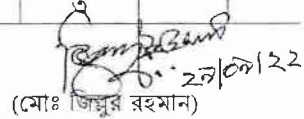 ২৯/০৯/২২
(মোঃ জিল্লুর রহমান)